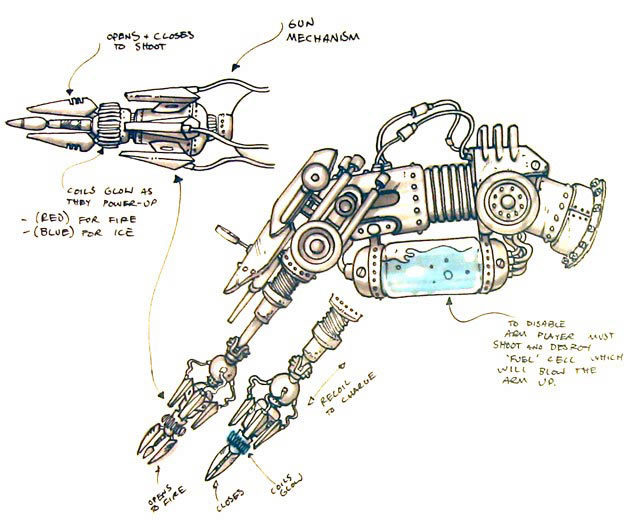 OPENS + CLOSES
TO SHOOT
GUN
MECHANISM
COILS GLOW AS
THEY POWER-UP
- (RED) FOR FIRE
- (BLUE) FOR ICE
TO DISABLE
ARM PLAYER MUST
SHOOT AND DESROY
'FUEL' CELL WHICH
WILL BLOW THE
ARM UP.
RECOIL
TO CHARGE
OPENS
TO FIRE
CLOSES
COILS
GLOW